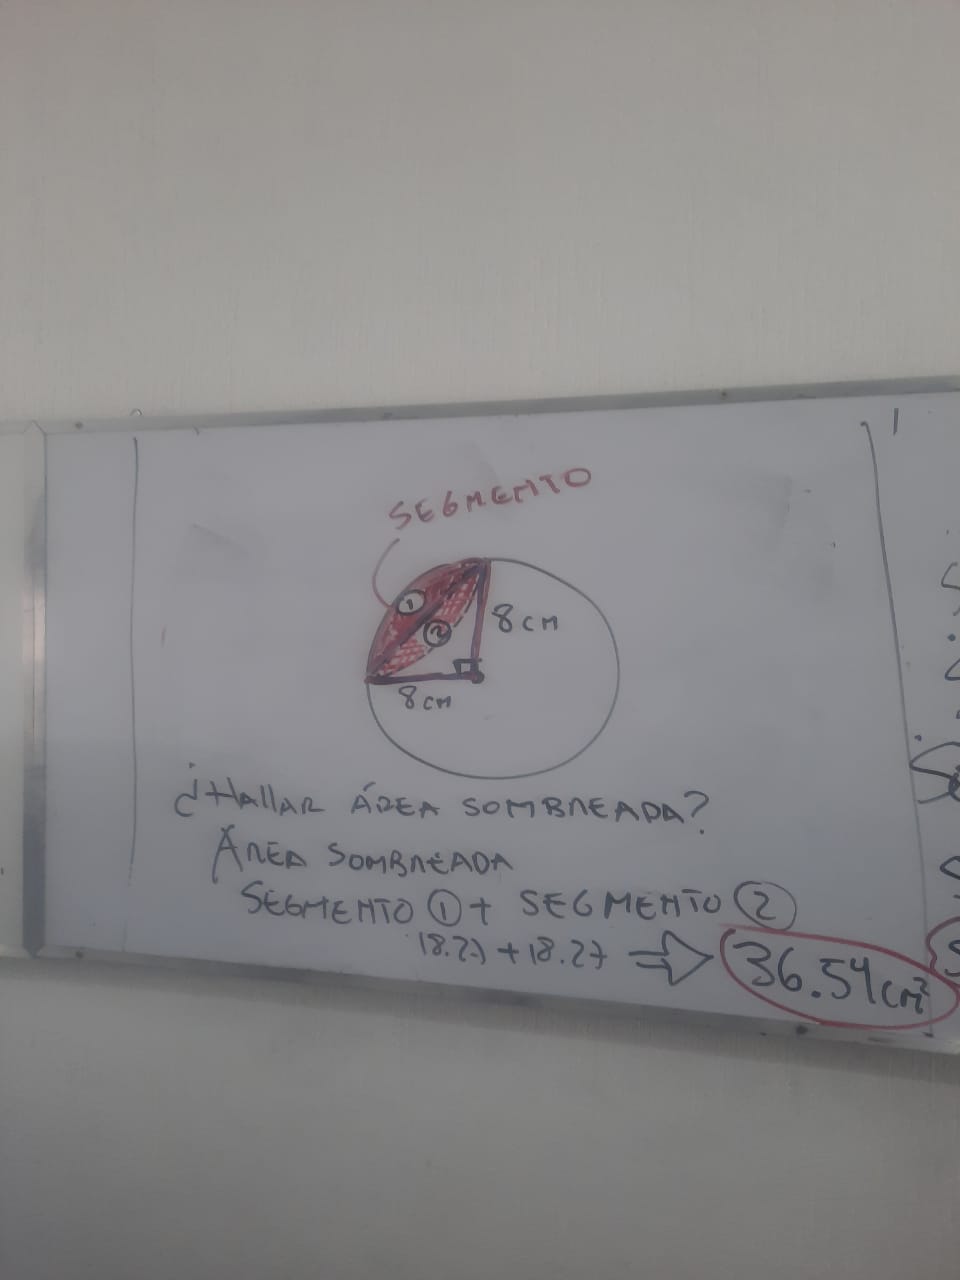 SEGMENTO
1
2
8 cm
8 cm
¿Hallar ÁREA SOMBREADA?
ÁREA SOMBREADA
SEGMENTO 1 + SEGMENTO 2
18.27 + 18.27 ⇒ 36.54 cm²